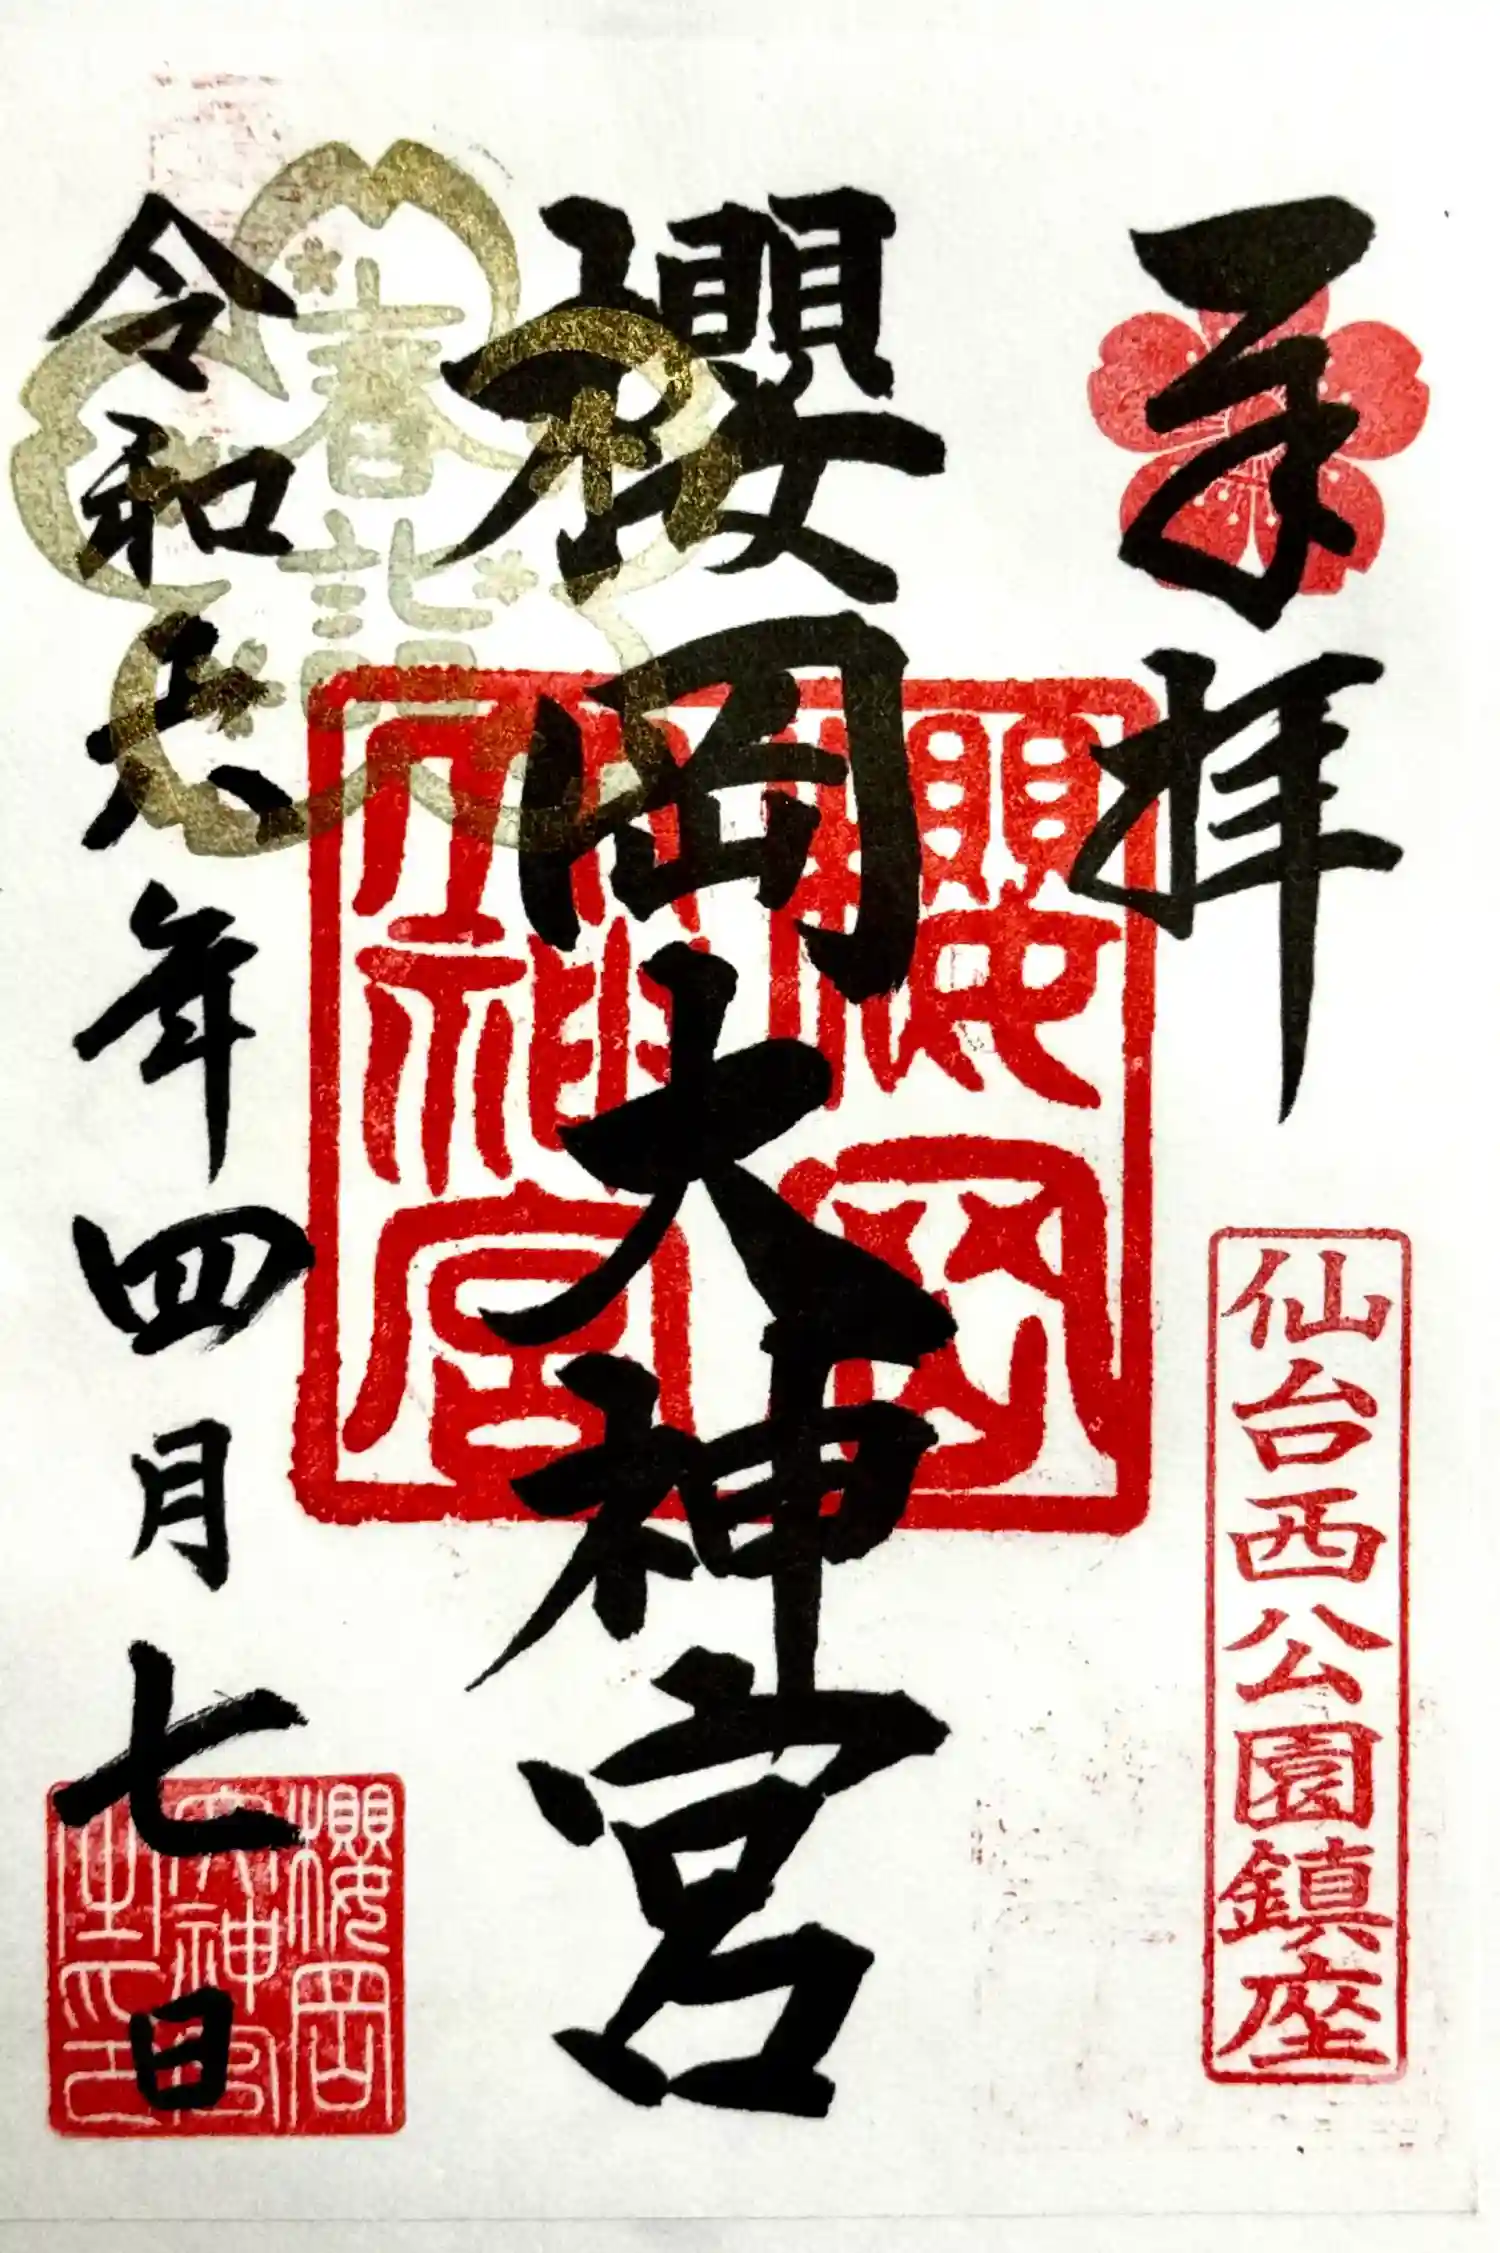 奉拝
仙台西公園鎮座
櫻岡大神宮
櫻岡
大神宮
春詣
令和六年四月七日
櫻岡
大神宮
之印